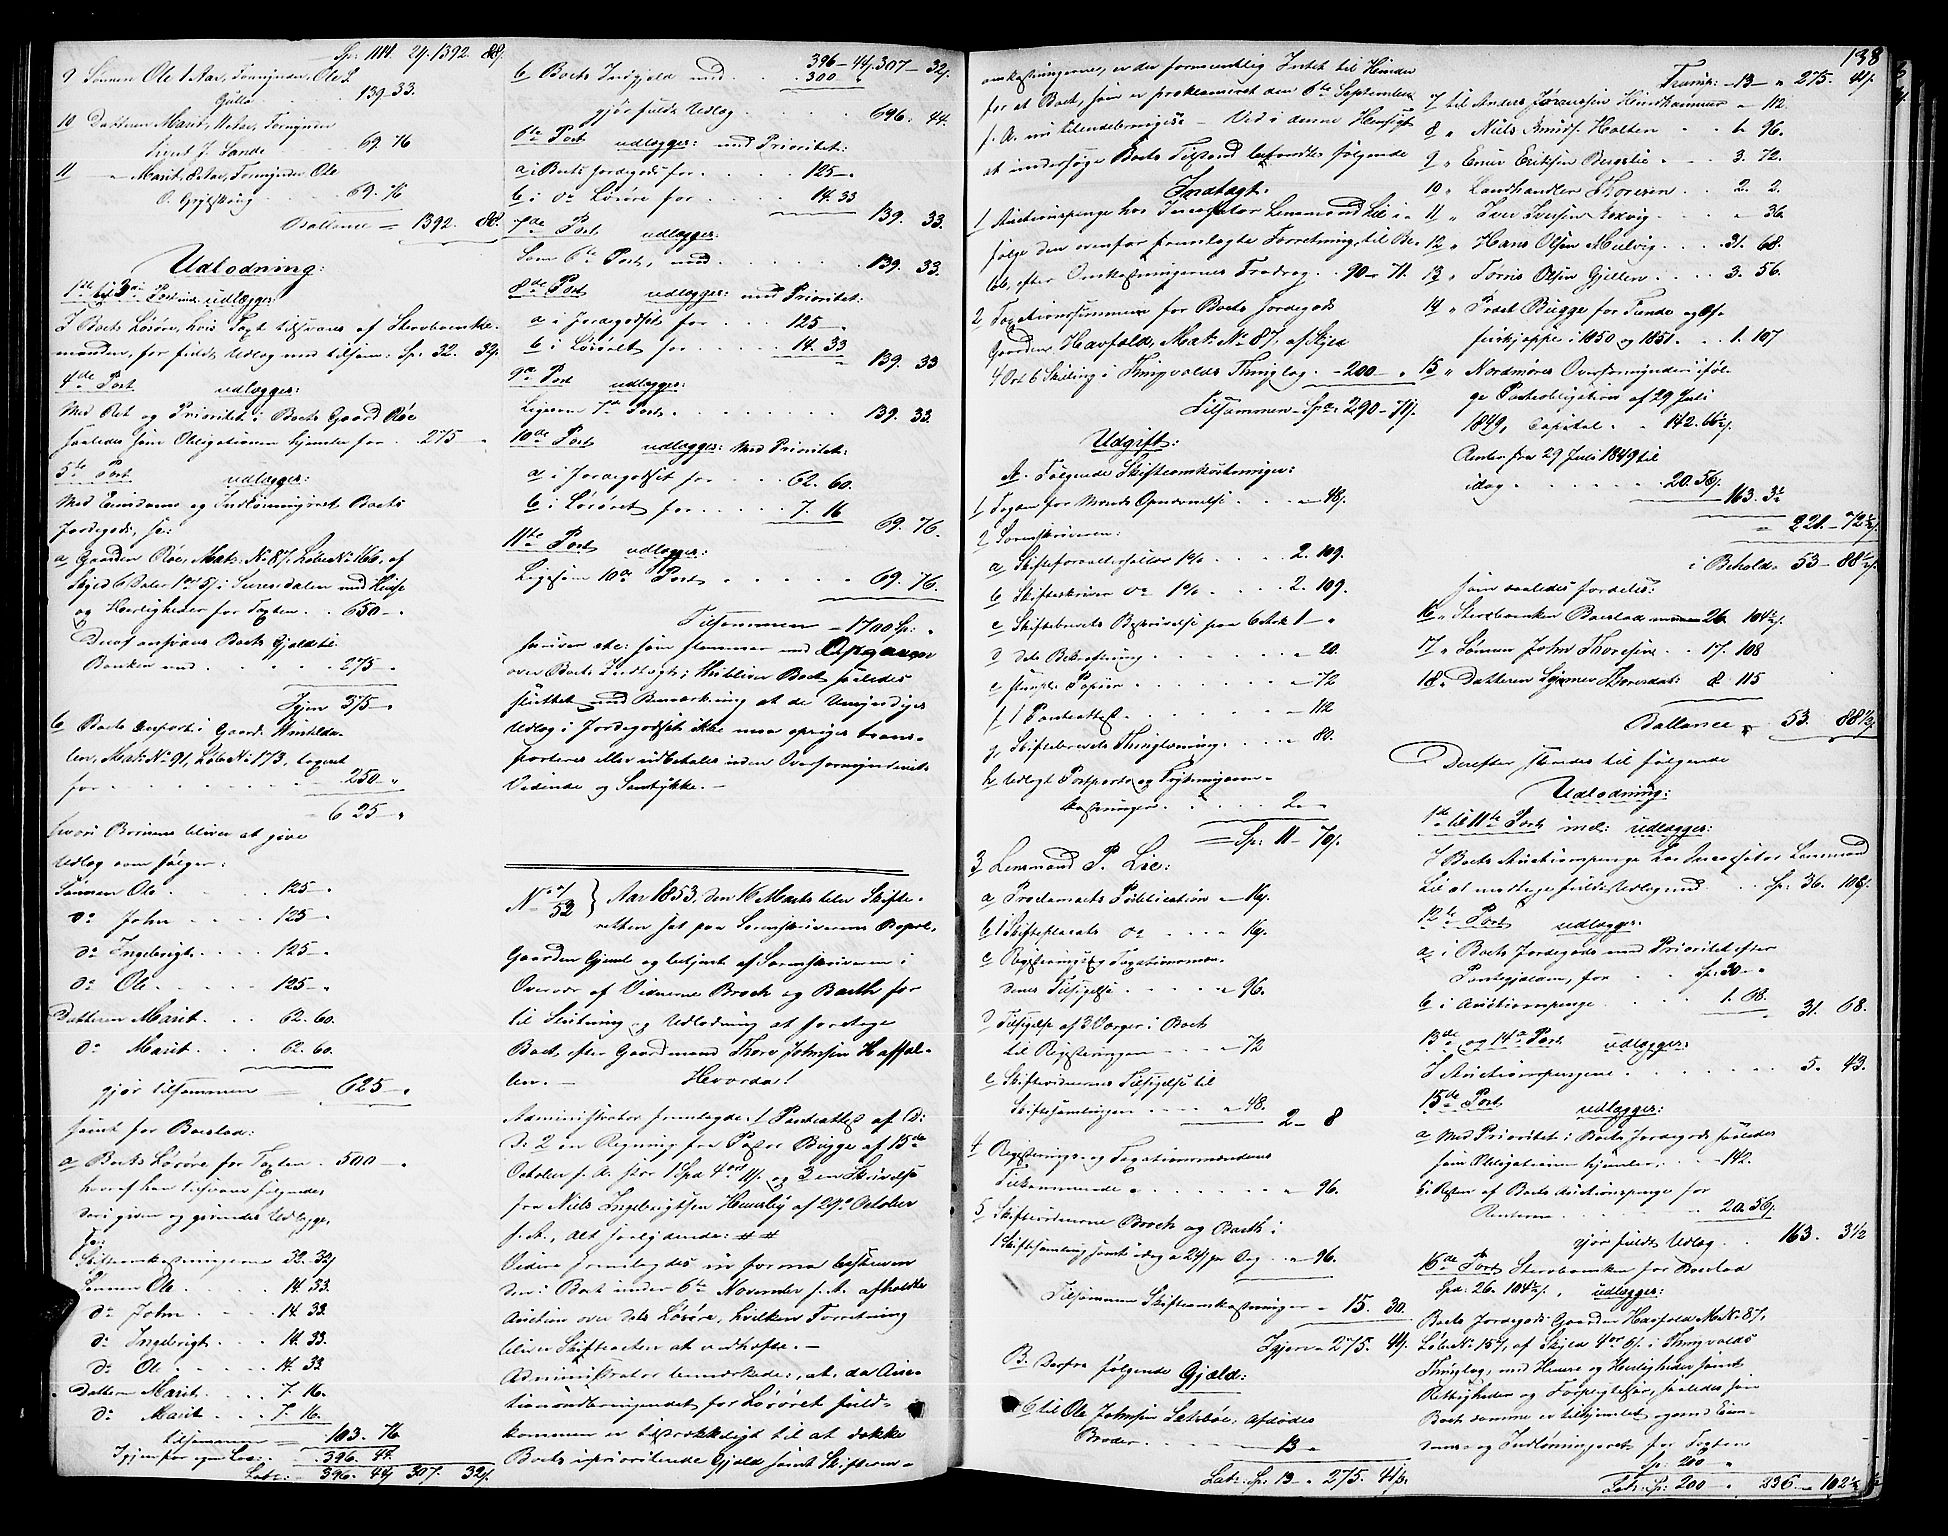 Sp: 1114. 24. 1392. 88.
9 Sønnen Ole 1 Aar, Formynder, Ole L.
Gulla . . . 139. 33.
10 Datteren Marit, Formynder
Sivert J. Sande . . 69. 76
11 " Marit, Formynder Ole
O. . . . 69. 76
Ballance = 1392. 88.
Udlodning:
1ste til 3die Post udlægges
I Boets Løsøre, hvis Taxt tilsvares af Sterboenke-
manden, for fuldt Udlæg med tilsam: Sp: 32. 32.
4de Post udlægges:
Med Ret og Prioritet i Boets Gaard Røe
saaledes som Obligationen hjemler for . 275 "
5te Post udlægges:
Med Eiendoms og Indløsningsret Boets
Jordegods, so:
a Gaarden Røe, Mat: No 87, Løbe No 166, af
Skyld 6 Daler 1 ort 5 i Surendalen med Huse
og Herligheder for Taxten . . 650 "
Deraf ansvares Boets Gjeld til
Banken med . . . . 275 "
Igjen 375 "
b Boets Enepart i Gaard Vintilda-
len, Mat: No 91, Løbe No 173, taxeret
for . . . . 250 "
625 "
hvori Børnene bliver at give
Udlæg som følger:
Sønnen Ole . . . 125 "
do John . . . 125 "
do Ingebrigt . . . 125 "
do Ole . . . 125 "
Datteren Marit . . . 62. 60.
do Marit . . . 62. 60.
gjør tilsammen = 625 "
samt for Boeslod:
a Boets Løsøre for Taxten . 500 "
hvoraf han tilsvarer følgende
deri given og givendes Udlægge,
so:
Skifteomkostningerne 32. 32
Sønnen Ole . . . 14. 33.
do John . . . 14. 33.
do Ingebrigt . . . 14. 33.
do Ole . . . 14. 33
Datteren Marit . . . 7. 16.
do Marit . . . 7. 16.
tilsammen = 103. 76
Igjen for egen Lod . . 396. 44.
Lat: = 396. 44 307. 32.
396 - 44. 307 - 32.
b Boets Indgjeld med . . 300 "
gjør fuldt Udlæg . . . 696. 44.
6te Post udlægges: med Prioritet:
a i Boets Jordegods for . . . 125 "
b i do Løsøre for . . . 14. 33
139. 33.
7de Post udlægges:
Som 6te Post, med . . . 139. 33.
8de Post udlægges: med Prioritet:
a i Jordegodset for . . 125 "
b i Løsøret for . . . 14. 33
139. 33
9de Post udlægges:
Ligesom 7de Post . . . 139. 33.
10de Post udlægges: med Prioritet:
a i Jordegodset for . . 62. 60.
b i Løsøret for . . . 7. 16
69. 76.
11te Post udlægges:
Ligesom 10de Post . . . 69. 76.
Tilsammen = 1700 Sp: "
skriver etc: som stemmer med Opgaven
over Boets Indtægt; thi bliver Boet saaledes
sluttet med Bemærkning at de Umyndiges
Udlæg i Jordegodset ikke maa opsiges trans-
porteres eller udbetales uden Overformynderiets
Vidende og Samtykke. -
No 7/52 } Aar 1853, den 16 Marts blev Skifte-
retten sat paa Sorenskriverens Bopæl,
Gaarden Gjeml og betjent af Sorenskriveren i
Overvær af Vidnerne Broch og Barth for
til Slutning og Udlodning at foretage
Boet efter Gaardmand Thore Johnsen Haffal-
len. - Hvorda!
Administrator fremlagde: 1 Panteattest af D:
D: 2 en Regning fra Pastor Bugge af 15de
October f. A. stor 1 Spd 4 ort 11 og 3 en Skrivelse
fra Niels Ingebrigtsen Hennset af 29de October
f. A., alt saalydende: # #
Videre fremlagdes in forma beskreven
den i Boet under 6te November f. A. afholdte
Auction over dets Løsøre, hvilken Forretning
bliver Skifteacten at vedhæfte. -
Administrator bemærkede, at, da Auc-
tionsudbringendet for Løsøret fuld-
kommen er tilstrækkeligt til at dække
Boets upriviterede Gjæld samt Skifteom-
138
omkostningerne, er der formeentlig Intet til Hinder
for at Boet, som er proklameret den 6te September
f. A. nu tilendebringes - Ved i denne Hensigt
at undersøge Boets Tilstand befandtes følgende
Indtægt:
1 Auctionspenge hos Incassator Lensmand Lie i-
følge den ovenfor fremlagte Forretning, til Be-
løb, efter Omkostningernes Fradrag . . 90 - 71.
2 Taxationssummen for Boets Jordegods
Gaarden Havfald, Mat: No 87, af Skyld
4 Ort 6 Skilling i Thingvolds Thinglag . - 200 - "
Tilsammen - Spd 290 - 71.
Udgift:
A. Følgende Skifteomkostninger:
1 Fogden for Mænds Opnævnelse . . . " 48.
2 Sorenskriveren:
a Skifteforvalterfallæ 1% . . . 2. 109.
b Skifteskriver do 1% . . . 2. 109.
c Skiftebrevets Beskrivelse paa 6 Ark 1 - "
d Dets Bekræftning . . . " 20.
e stempl: Papiir . . . " 72
f 1 Panteattest . . . " 112
g Skiftebrevets Thinglæsning . . . " 80.
h Udlagt Postporto og Kjøringsom-
kostninger . . . 2 "
= Sp: 11 - 70.
3 Lensmand P. Lie:
a Proclamaets Publication " 16.
b 1 Skifteplacats do . . " 16.
c Registerings og Taxationsmæn-
denes Tilsigelse . . . " 96.
d Tilsigelse af 3 Værger i Boet
til Registeringen . . . " 72
e Skiftevidnernes Tilsigelse til
Skiftesamlingen . . . " 48.
2 - 8
4 Registerings og Taxationsmændenes
Tilkommende . . . " 96.
5 Skiftevidnerne Broch og Barth i
1 Skiftesamling samt idag a 24 pr Dag . . " 96.
Tilsammen Skifteomkostninger " 15. 30.
Igjen " 275. 41.
B. Derfra følgende Gjæld:
6 til Ole Johnsen Sætebøe, afdødes
Broder . . . 13 "
Lat: Sp: 13 - " 275. 41.
Transp: " 13 - " 275. 41.
7 til Anders Jørensen Hindhammer " 112.
8 " Niels Knuds: Holten . . 1. 96.
9 " Enur Eriksen Bergslie . . 3. 72.
10 " Landhandler Thoresen . . 2. 2.
11 " Iver Iversen . . " 36.
12 " Hans Olsen Meelvig . . 31. 68.
13 " Tørris Olsen Gjellen . . 3. 56.
14 " Præst Bugge for Tiende og Of-
ferskjæppe i 1850 og 1851 . . 1. 107
15 " Nordmøres Overformynderi iføl-
ge Panteobligation af 29 Juli
1849, Capital . . 142. 66½.
Renter fra 29 Juli 1849 til
idag . . . 20. 56.
163. 3½
= 221. - 72½.
i Behold: 53 - 88½.
som saaledes fordeles:
16 " Sterboenken Boeslod 26. 104½.
17 " Sønnen John Thoresen . . 17. 108
18 " Datteren Thoresdat: 8 115
Ballance = 53. 88½
Derefter skredes til følgende
Udlodning:
1ste til 11te Post incl: udlægges:
I Boets Auctionspenge hos Incassator Lensmand
Lie at modtage fuldt Udlæg med . . Sp: 36. 108.
12te Post udlægges:
a i Boets Jordegods med Prioritet efter
Pantegjælden, for . . Sp: 30 "
b i Auctionspenge . . 1. 68.
31. 68.
13de og 14de Post udlægges:
I Auctionspengene . . . 5. 43.
15de Post udlægges:
a Med Prioritet i Boets Jordegods saaledes
som Obligationen hjemler, . . 142.
b Resten af Boets Auctionspenge for
Renterne . . . 20. 56.
gjør fuldt Udlæg . . 163. 3½
16de Post Sterboenken for Boeslod
Spd: 26. 104½., udlægges:
Boets Jordegods Gaarden Havfald M: No 87,
Løbe No 157, af Skyld 4 ort 6 i Thingvolds
Thinglag, med Huuse og Herligheder samt
Rettigheder og Forpligtelser, saaledes som
Boet samme er tilhjemlet og med Eien-
doms- og Indløsningsret for Taxten
Sp: 200 "
Lat: Sp: 200 " . 236. - 102½